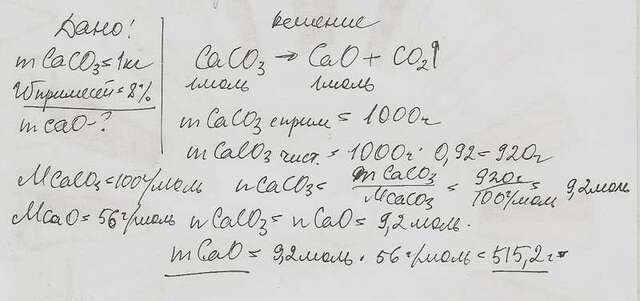 Дано:
m CaCO3 = 1кг
W примесей = 8%
m CaO - ?
Решение
CaCO3 → CaO + CO2↑
1моль 1моль
m CaCO3 с прим = 1000г
m CaCO3 чист. = 1000г · 0,92 = 920г
M CaCO3 = 100г/моль n CaCO3 = m CaCO3 / M CaCO3 = 920г / 100г/моль = 9,2 моль
M CaO = 56 г/моль n CaCO3 = n CaO = 9,2 моль.
m CaO = 9,2 моль · 56 г/моль = 515,2 г